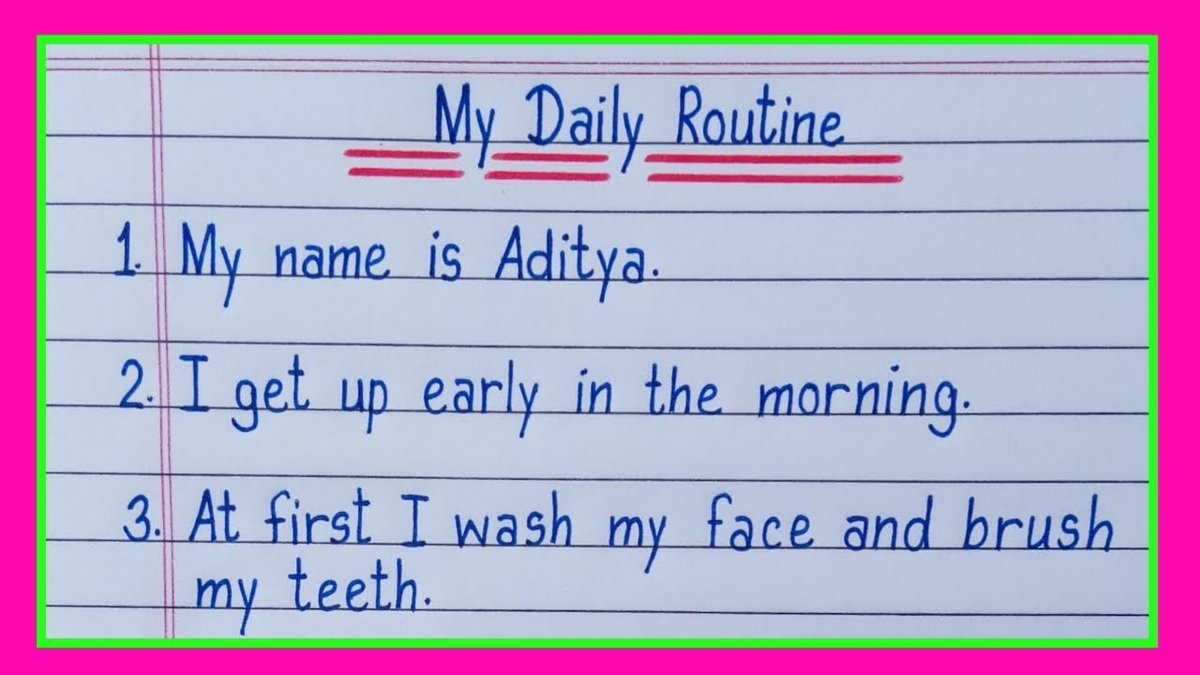 My Daily Routine
1. My name is Aditya.
2. I get up early in the morning.
3. At first I wash my face and brush
my teeth.